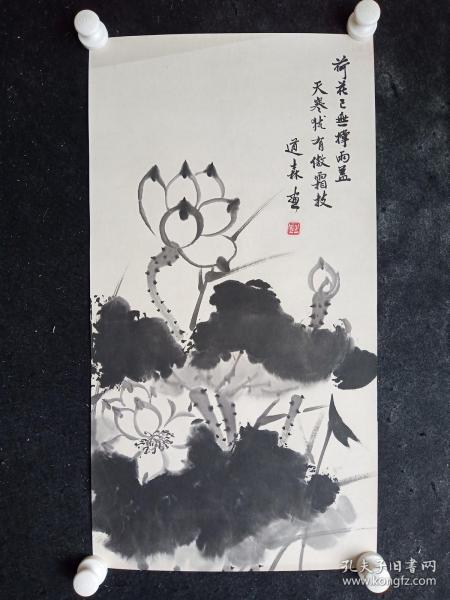 荷花已無擎雨蓋
天寒犹有傲霜枝
道森画
孔夫子旧书网
www.kongfz.com